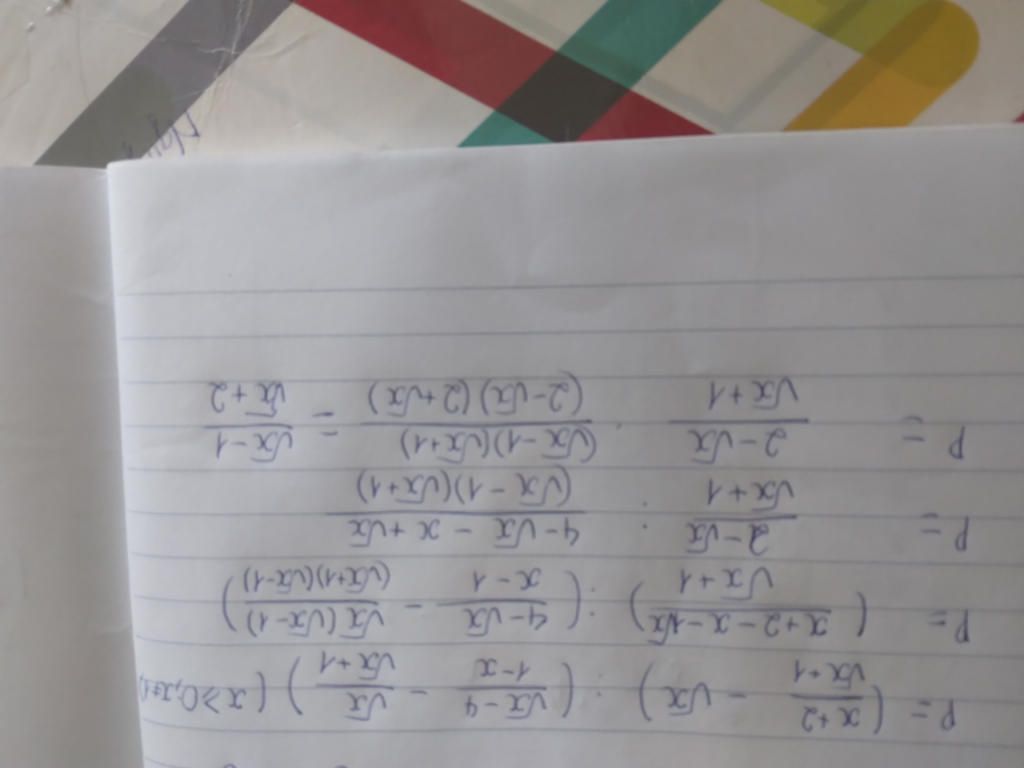 P = ( \frac{x+2}{\sqrt{x}+1} - \sqrt{x} ) : ( \frac{\sqrt{x}-4}{1-x} - \frac{\sqrt{x}}{\sqrt{x}+1} ) ( x ⩾ 0; x ≠ 1;
P = ( \frac{x+2-x-\sqrt{x}}{\sqrt{x}+1} ) : ( \frac{4-\sqrt{x}}{x-1} - \frac{\sqrt{x}(\sqrt{x}-1)}{(\sqrt{x}+1)(\sqrt{x}-1)} )
P = \frac{2-\sqrt{x}}{\sqrt{x}+1} : \frac{4-\sqrt{x}-x+\sqrt{x}}{(\sqrt{x}-1)(\sqrt{x}+1)}
P = \frac{2-\sqrt{x}}{\sqrt{x}+1} . \frac{(\sqrt{x}-1)(\sqrt{x}+1)}{(2-\sqrt{x})(2+\sqrt{x})} = \frac{\sqrt{x}-1}{\sqrt{x}+2}